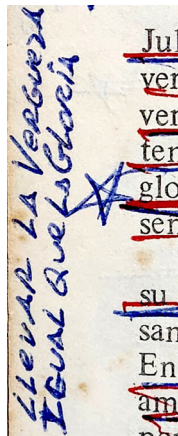 LLEVAR LA VERGUEZA
IGUAL QUE LA GLORIA
Jul
ver
ver
ten
glo
ser
su
san
En
am